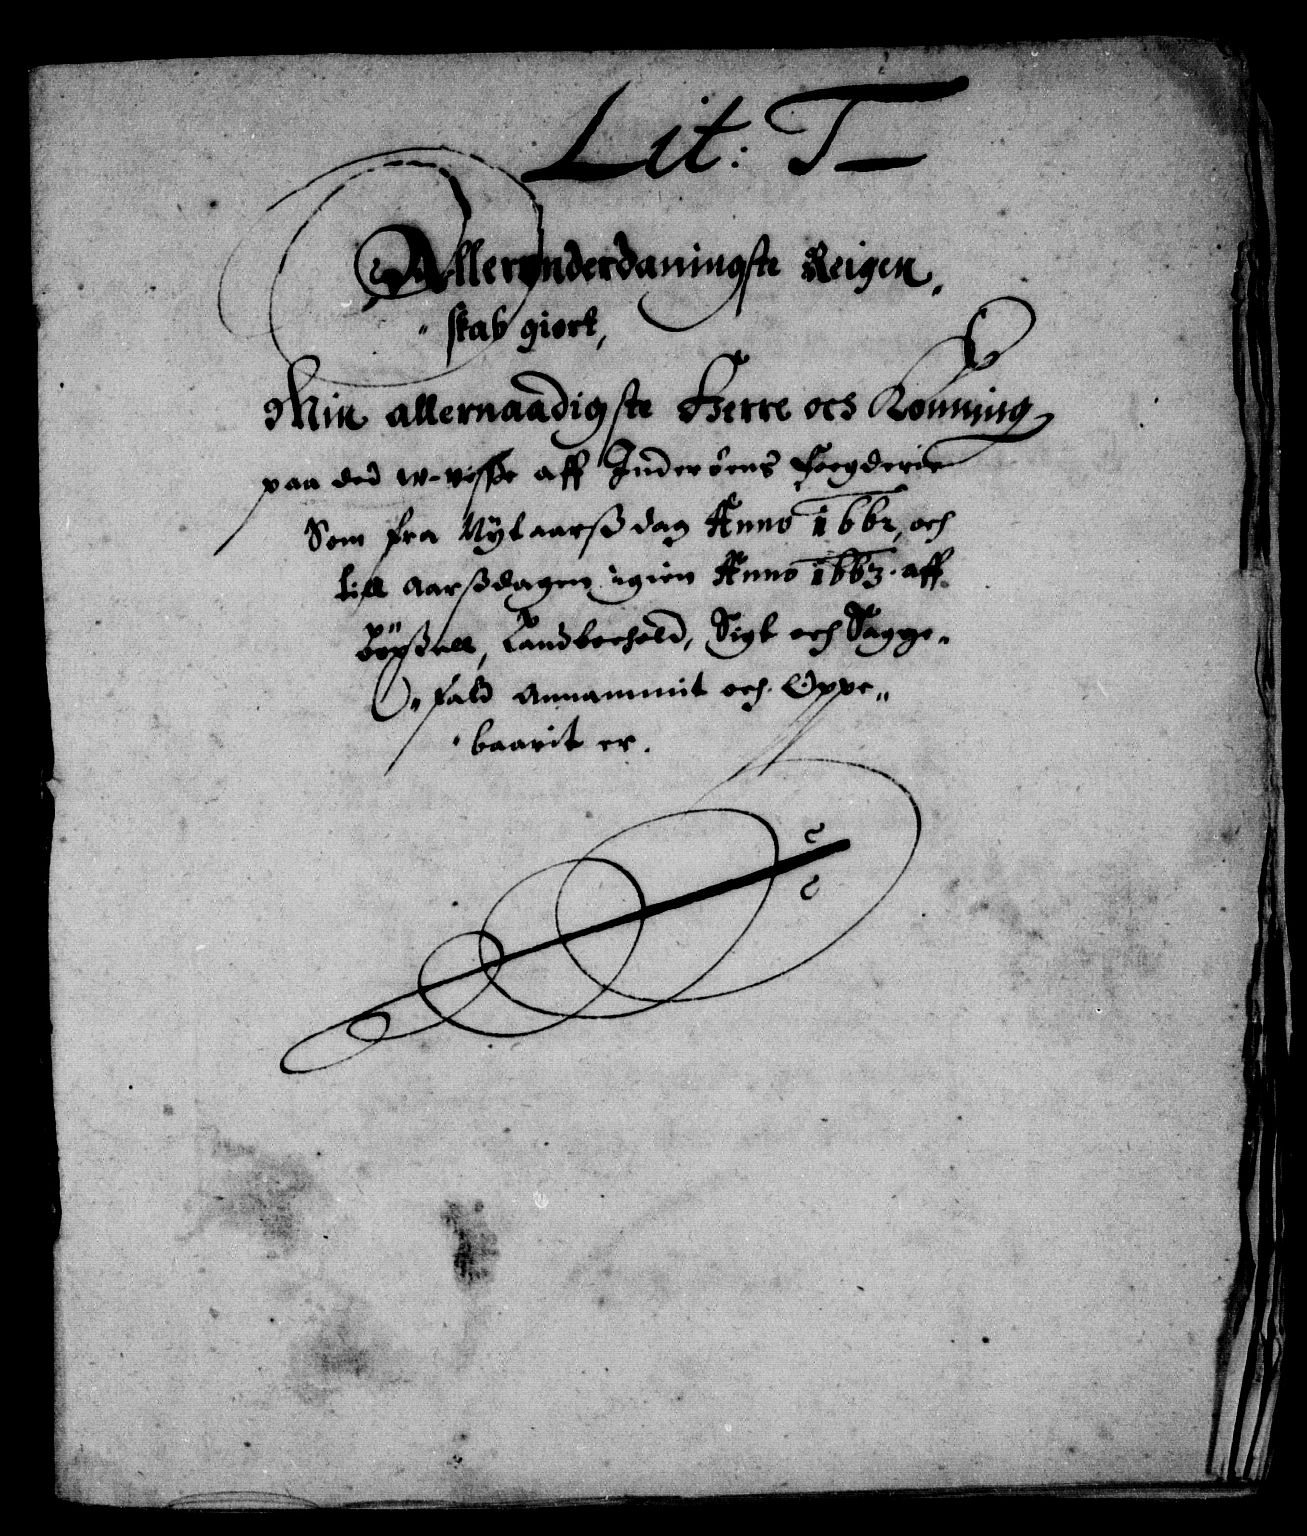 Lit: T
Allerunderdanningste Reigen
skab giort,
Min allernaadigste Herre och Konning
paa ded w-visse aff Inderøens Foegderie
Som fra Nytaarsß dag Anno 1662, och
till Aarsßdagen igien Anno 1663. aff
Landboehold, Sigt och Sagge-
fald Annammit och Oppe
baarit er.